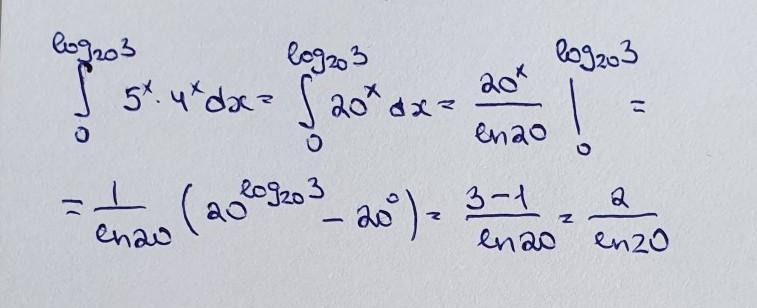 ∫₀^{log₂₀3} 5ˣ · 4ˣ dx = ∫₀^{log₂₀3} 20ˣ dx = \frac{20ˣ}{ln20} |₀^{log₂₀3} =
= \frac{1}{ln20} (20^{log₂₀3} - 20⁰) = \frac{3-1}{ln20} = \frac{2}{ln20}